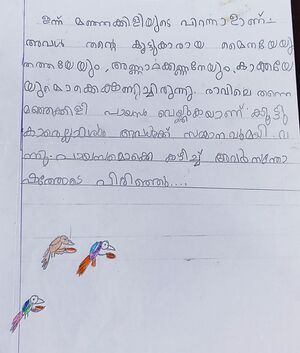 ഇന്ന് മഞ്ഞക്കിളിയുടെ പിറന്നാളാണ്.
അവൾ തന്റെ കൂട്ടുകാരായ മൈനയേയും
തത്തയേയും, അണ്ണാറക്കണ്ണനേയും, കാക്കയേ
യുമൊക്കെ ക്ഷണിച്ചിരുന്നു. രാവിലെ തന്നെ
മഞ്ഞക്കിളി പായസം വെയ്ക്കുകയാണ്. കൂട്ടു
കാരെല്ലാവരും അവൾക്ക് സമ്മാനവുമായി വ
ന്നു. പായസമൊക്കെ കഴിച്ച് അവർ സന്തോ
ഷത്തോടെ പിരിഞ്ഞു....